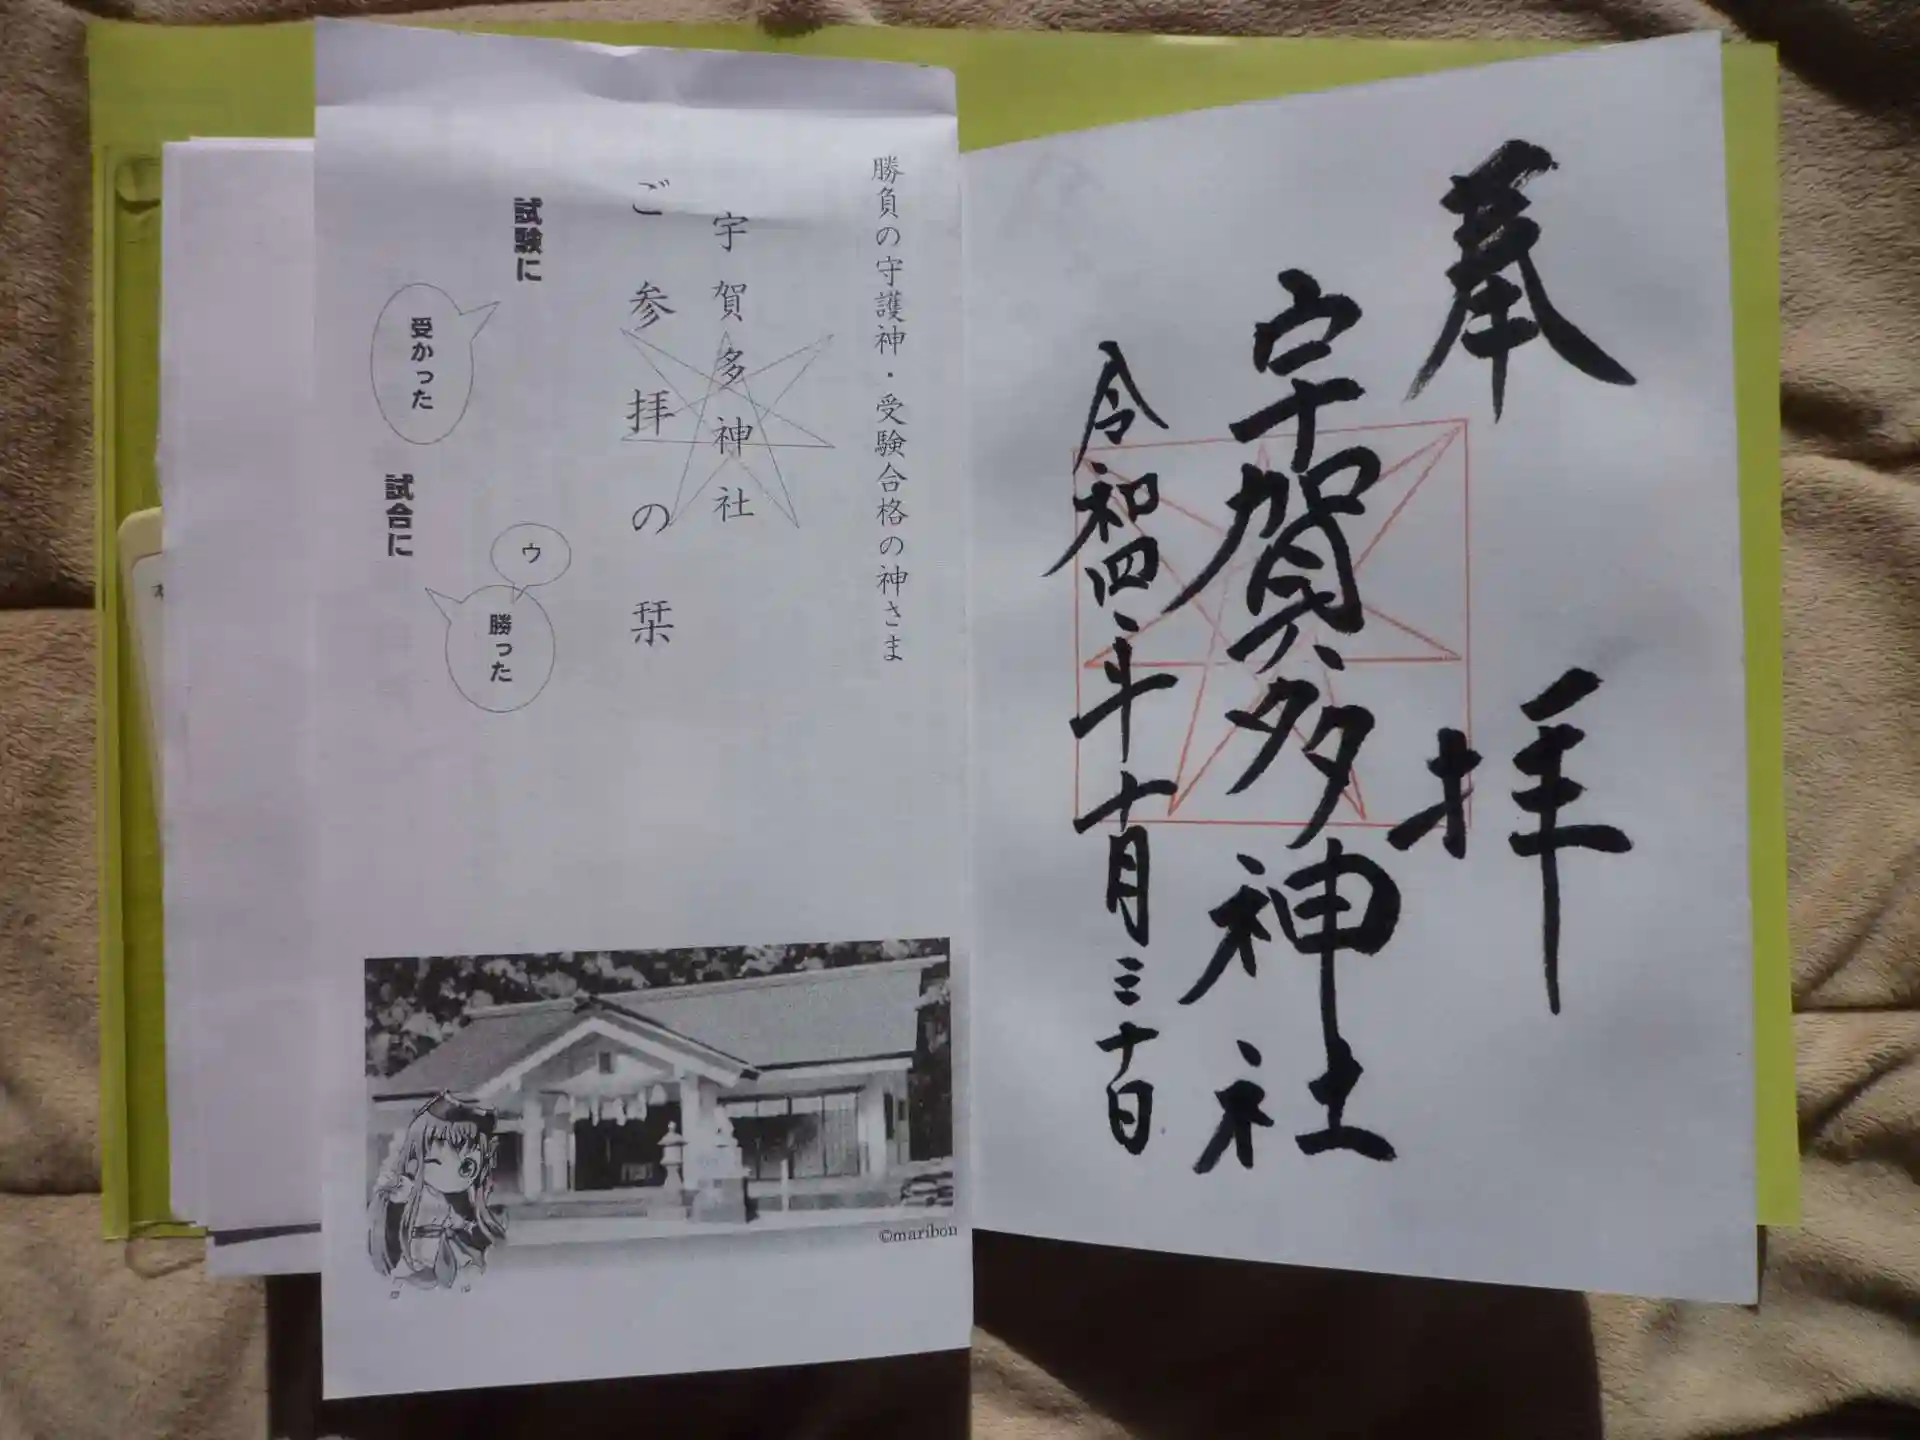 奉拝
宇賀多神社
令和四年十月三十日
勝負の守護神・受験合格の神さま
宇賀多神社
ご参拝の栞
試験に
受かった
試合に
ウ
勝った
©maribon